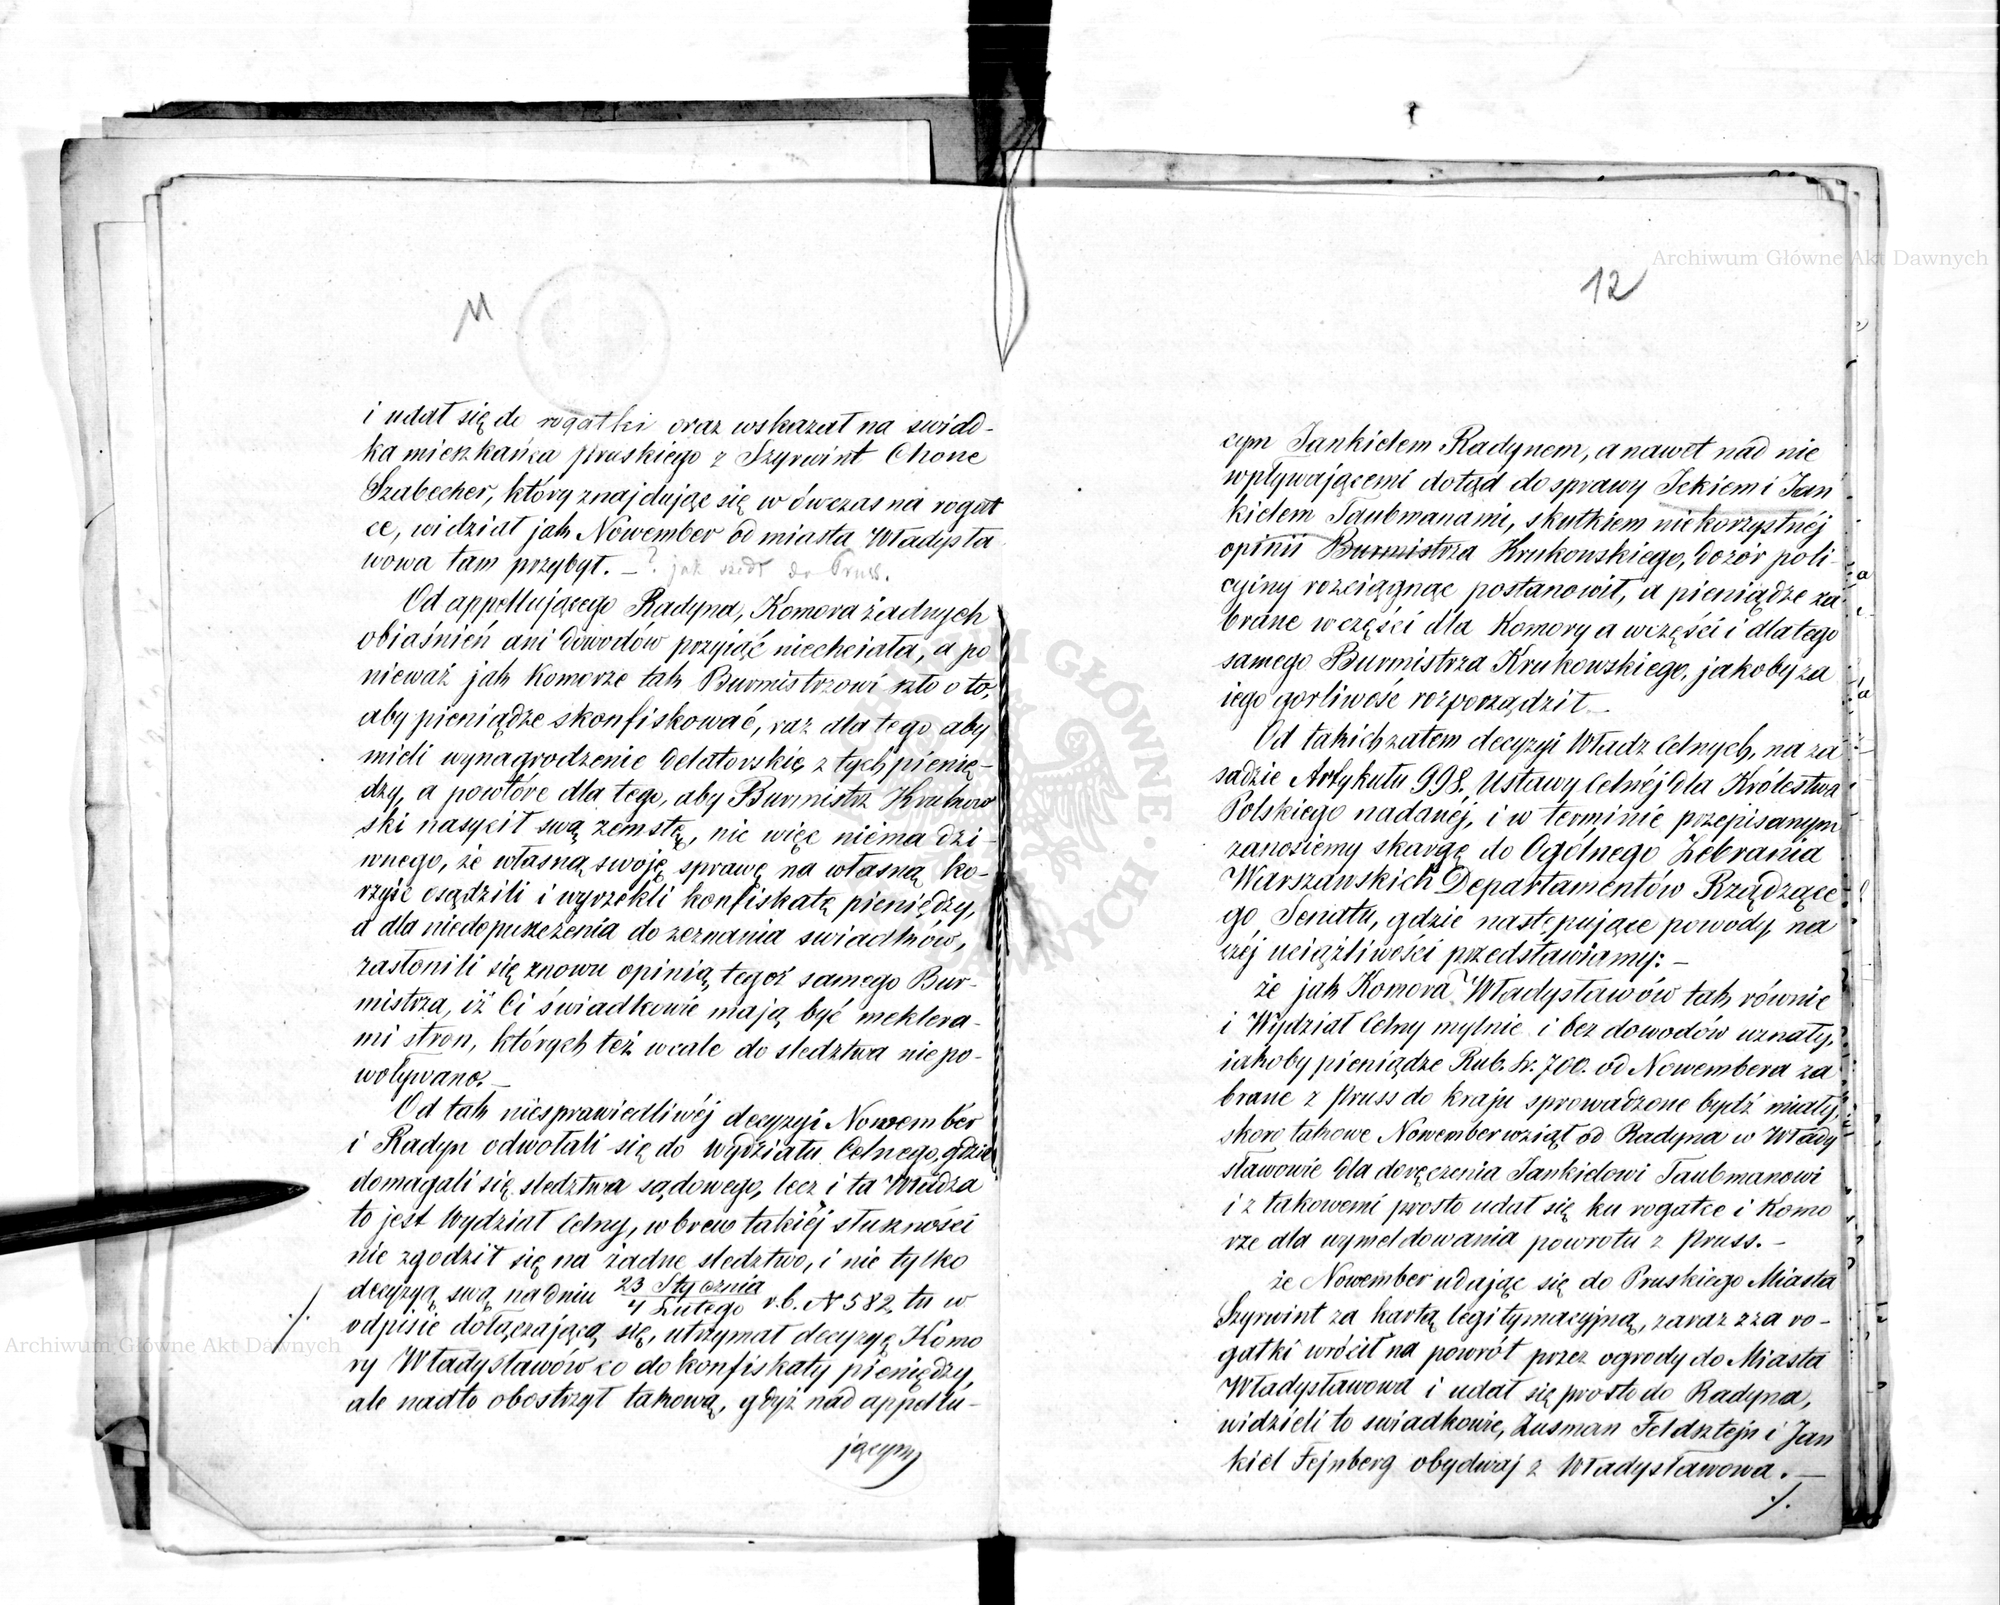 11
i udał się do rogatki oraz wskazał na swiad-
ka mieszkańca pruskiego z Szyrwint Chone
Szabecher, który znajdując się w ówczas na rogat
ce, widział jak Nowember od miasta Władysła
wowa tam przybył. — ? jak szedł do Pruss.
Od appellującego Radyna, Komora żadnych
obiaśnień ani dowodów przyiąć niechciała, a po
nieważ jak Komorze tak Burmistrzowi szło o to,
aby pieniądze skonfiskować, raz dla tego aby
mieli wynagrodzenie delatorskie z tych pienię-
dzy, a powtóre dla tego, aby Burmistrz Krukow
ski nasycił swą zemstę, nic więc niéma dzi-
wnego, że własną swoję sprawę na własną ko-
rzyść osądzili i wyrzekli konfiskatę pieniędzy,
a dla niedopuszczenia do zeznania swiadków,
zasłonili się znowu opinią tegoż samego Bur-
mistrza, iż Ci świadkowie mają być meklera-
mi stron, których też wcale do sledztwa niepo-
woływano. —
Od tak niesprawiedliwéj decyzyi Nowember
i Radyn odwołali się do Wydziału Celnego, gdzie
domagali się sledztwa sądowego, lecz i ta Władza
to jest Wydział Celny, wbrew takiéj słuszności
nie zgodził się na żadne sledztwo, i nie tylko
decyzyą swą na dniu 23 Stycznia / 4 Lutego r.b. N 582, tu w
odpisie dołączającą się, utrzymał decyzyę Komo
ry Władysławów co do konfiskaty pieniędzy,
ale nadto obostrzył takową, gdyż nad appellu-
jącym
12
cym Jankielem Radynem, a nawet nad nie
wpływającemi dotąd do sprawy Ickiem i Jan
kielem Taubmanami, skutkiem niekorzystnéj
opinii Burmistrza Krukowskiego, dozór poli-
cyjny rozciągnąć postanowił, a pieniądze za-
brane w części dla Komory a w części i dla tego
samego Burmistrza Krukowskiego, jakoby za
iego gorliwość rozporządził. —
Od takich zatem decyzyi Władz Celnych, na za
sadzie Artykułu 998. Ustawy Celnéj dla Królestwa
Polskiego nadanéj, i w terminie przepisanym
zanosiemy skargę do Ogólnego Zebrania
Warszawskich Departamentów Rządzące
go Senatu, gdzie następujące powody na
széj uciążliwości przedstawiamy: —
że jak Komora Władysławów tak równie
i Wydział Celny mylnie i bez dowodów uznały,
iakoby pieniądze Rub. sr. 700. od Nowembera za
brane z Pruss do kraju sprowadzone bydź miały,
skoro takowe Nowember wziął od Radyna w Włady
sławowie dla doręczenia Jankielowi Taubmanowi
i z takowemi prosto udał się ku rogatce i Komo
rze dla wymeldowania powrotu z Pruss. —
że Nowember udając się do Pruskiego Miasta
Szyrwint za kartą legitymacyjną, zaraz zza ro-
gatki wrócił na powrót przez ogrody do Miasta
Władysławowa i udał się prosto do Radyna,
widzieli to swiadkowie, Zusman Feldsztejn i Jan
kiel Fejnberg obydwaj z Władysławowa. —
./.
Archiwum Główne Akt Dawnych
Archiwum Główne Akt Dawnych